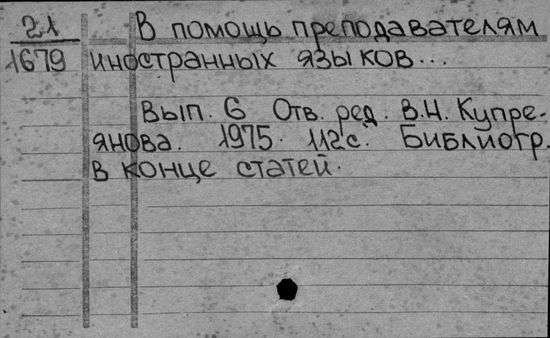 21
1679
В помощь преподавателям
иностранных языков...
Вып. 6 Отв. ред. В.Н. Купре-
янова. 1975. 112с. Библиогр.
в конце статей.